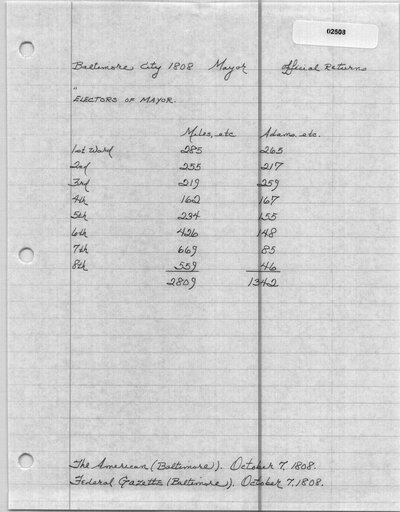 02503
Baltimore City 1808 Mayor Official Returns
"
ELECTORS OF MAYOR.
Miles, etc Adams, etc.
1st Ward 285 265
2nd 255 217
3rd 219 259
4th 162 167
5th 234 155
6th 426 148
7th 669 85
8th 559 46
2809 1342
The American (Baltimore). October 7, 1808.
Federal Gazette (Baltimore). October 7, 1808.